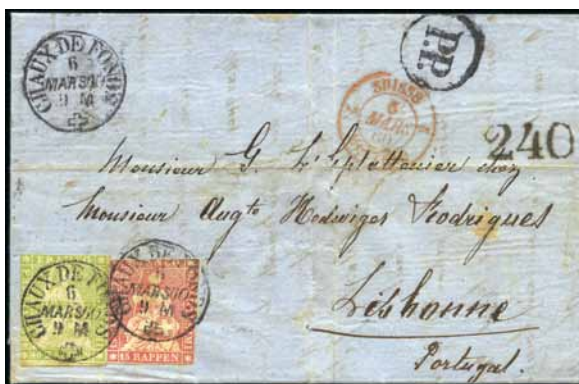 CHAUX DE FONDS
6
MARS60
9 M
P.P.
SUISSE
6
MARS
60
240
Monsieur G. L'Eplattenier chez
Monsieur Augte Hedwiges Rodrigues
Lisbonne
Portugal.
CHAUX DE FONDS
6
MARS60
9 M
CHAUX DE FONDS
6
MARS60
9 M
15 RAPPEN